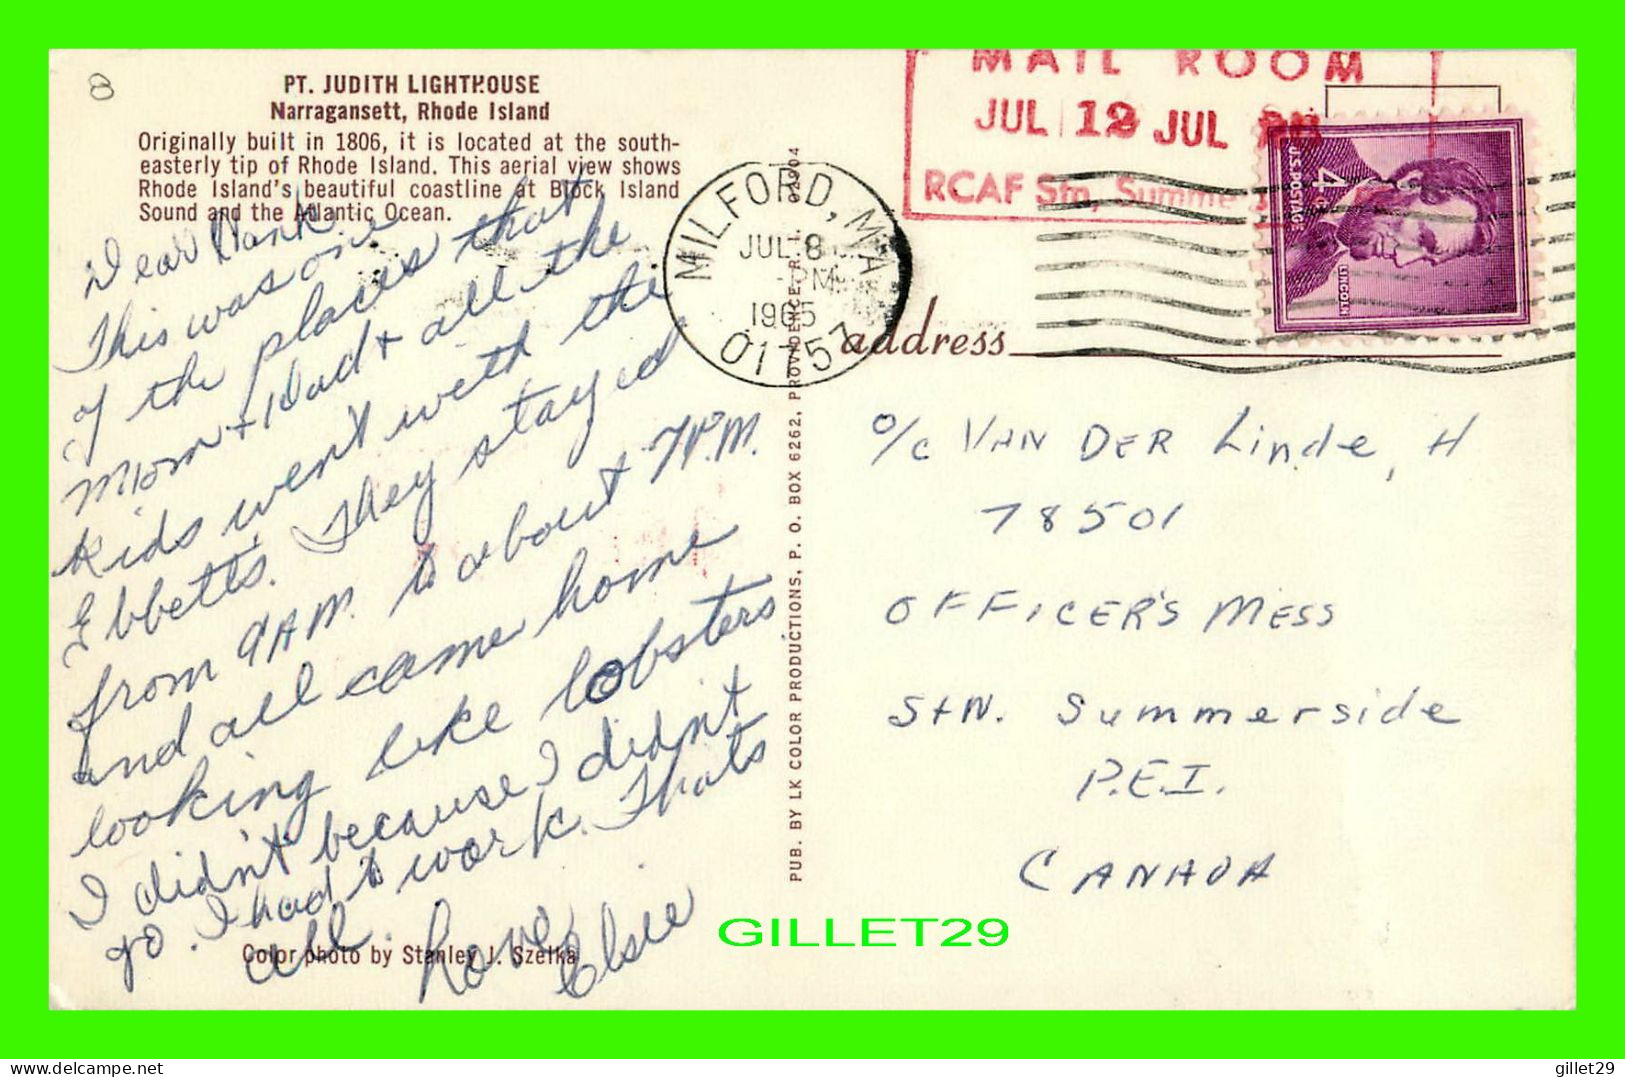 8
PT. JUDITH LIGHTHOUSE
Narragansett, Rhode Island
Originally built in 1806, it is located at the south-
easterly tip of Rhode Island. This aerial view shows
Rhode Island's beautiful coastline at Block Island
Sound and the Atlantic Ocean.
Dear Hank
This was one
of the places that
Mom + Dad + all the
kids went with the
Ebbetts. They stayed
from 9 AM. to about 7 P.M.
and all came home
looking like lobsters
I didn't because I didn't
go. I had to work. Thats
all. Love,
Elsie
Color photo by Stanley J. Szelka
PUB. BY LK COLOR PRODUCTIONS, P. O. BOX 6262, PROVIDENCE, R. I.
MILFORD, MA
JUL 8
PM
1965
01757
MAIL ROOM
JUL 12 JUL
RCAF Stn, Summe
U.S. POSTAGE
4¢
LINCOLN
address
O/C VAN DER Linde, H
78501
OFFICER'S MESS
StN. Summerside
P.E.I.
CANADA
GILLET29
gillet29